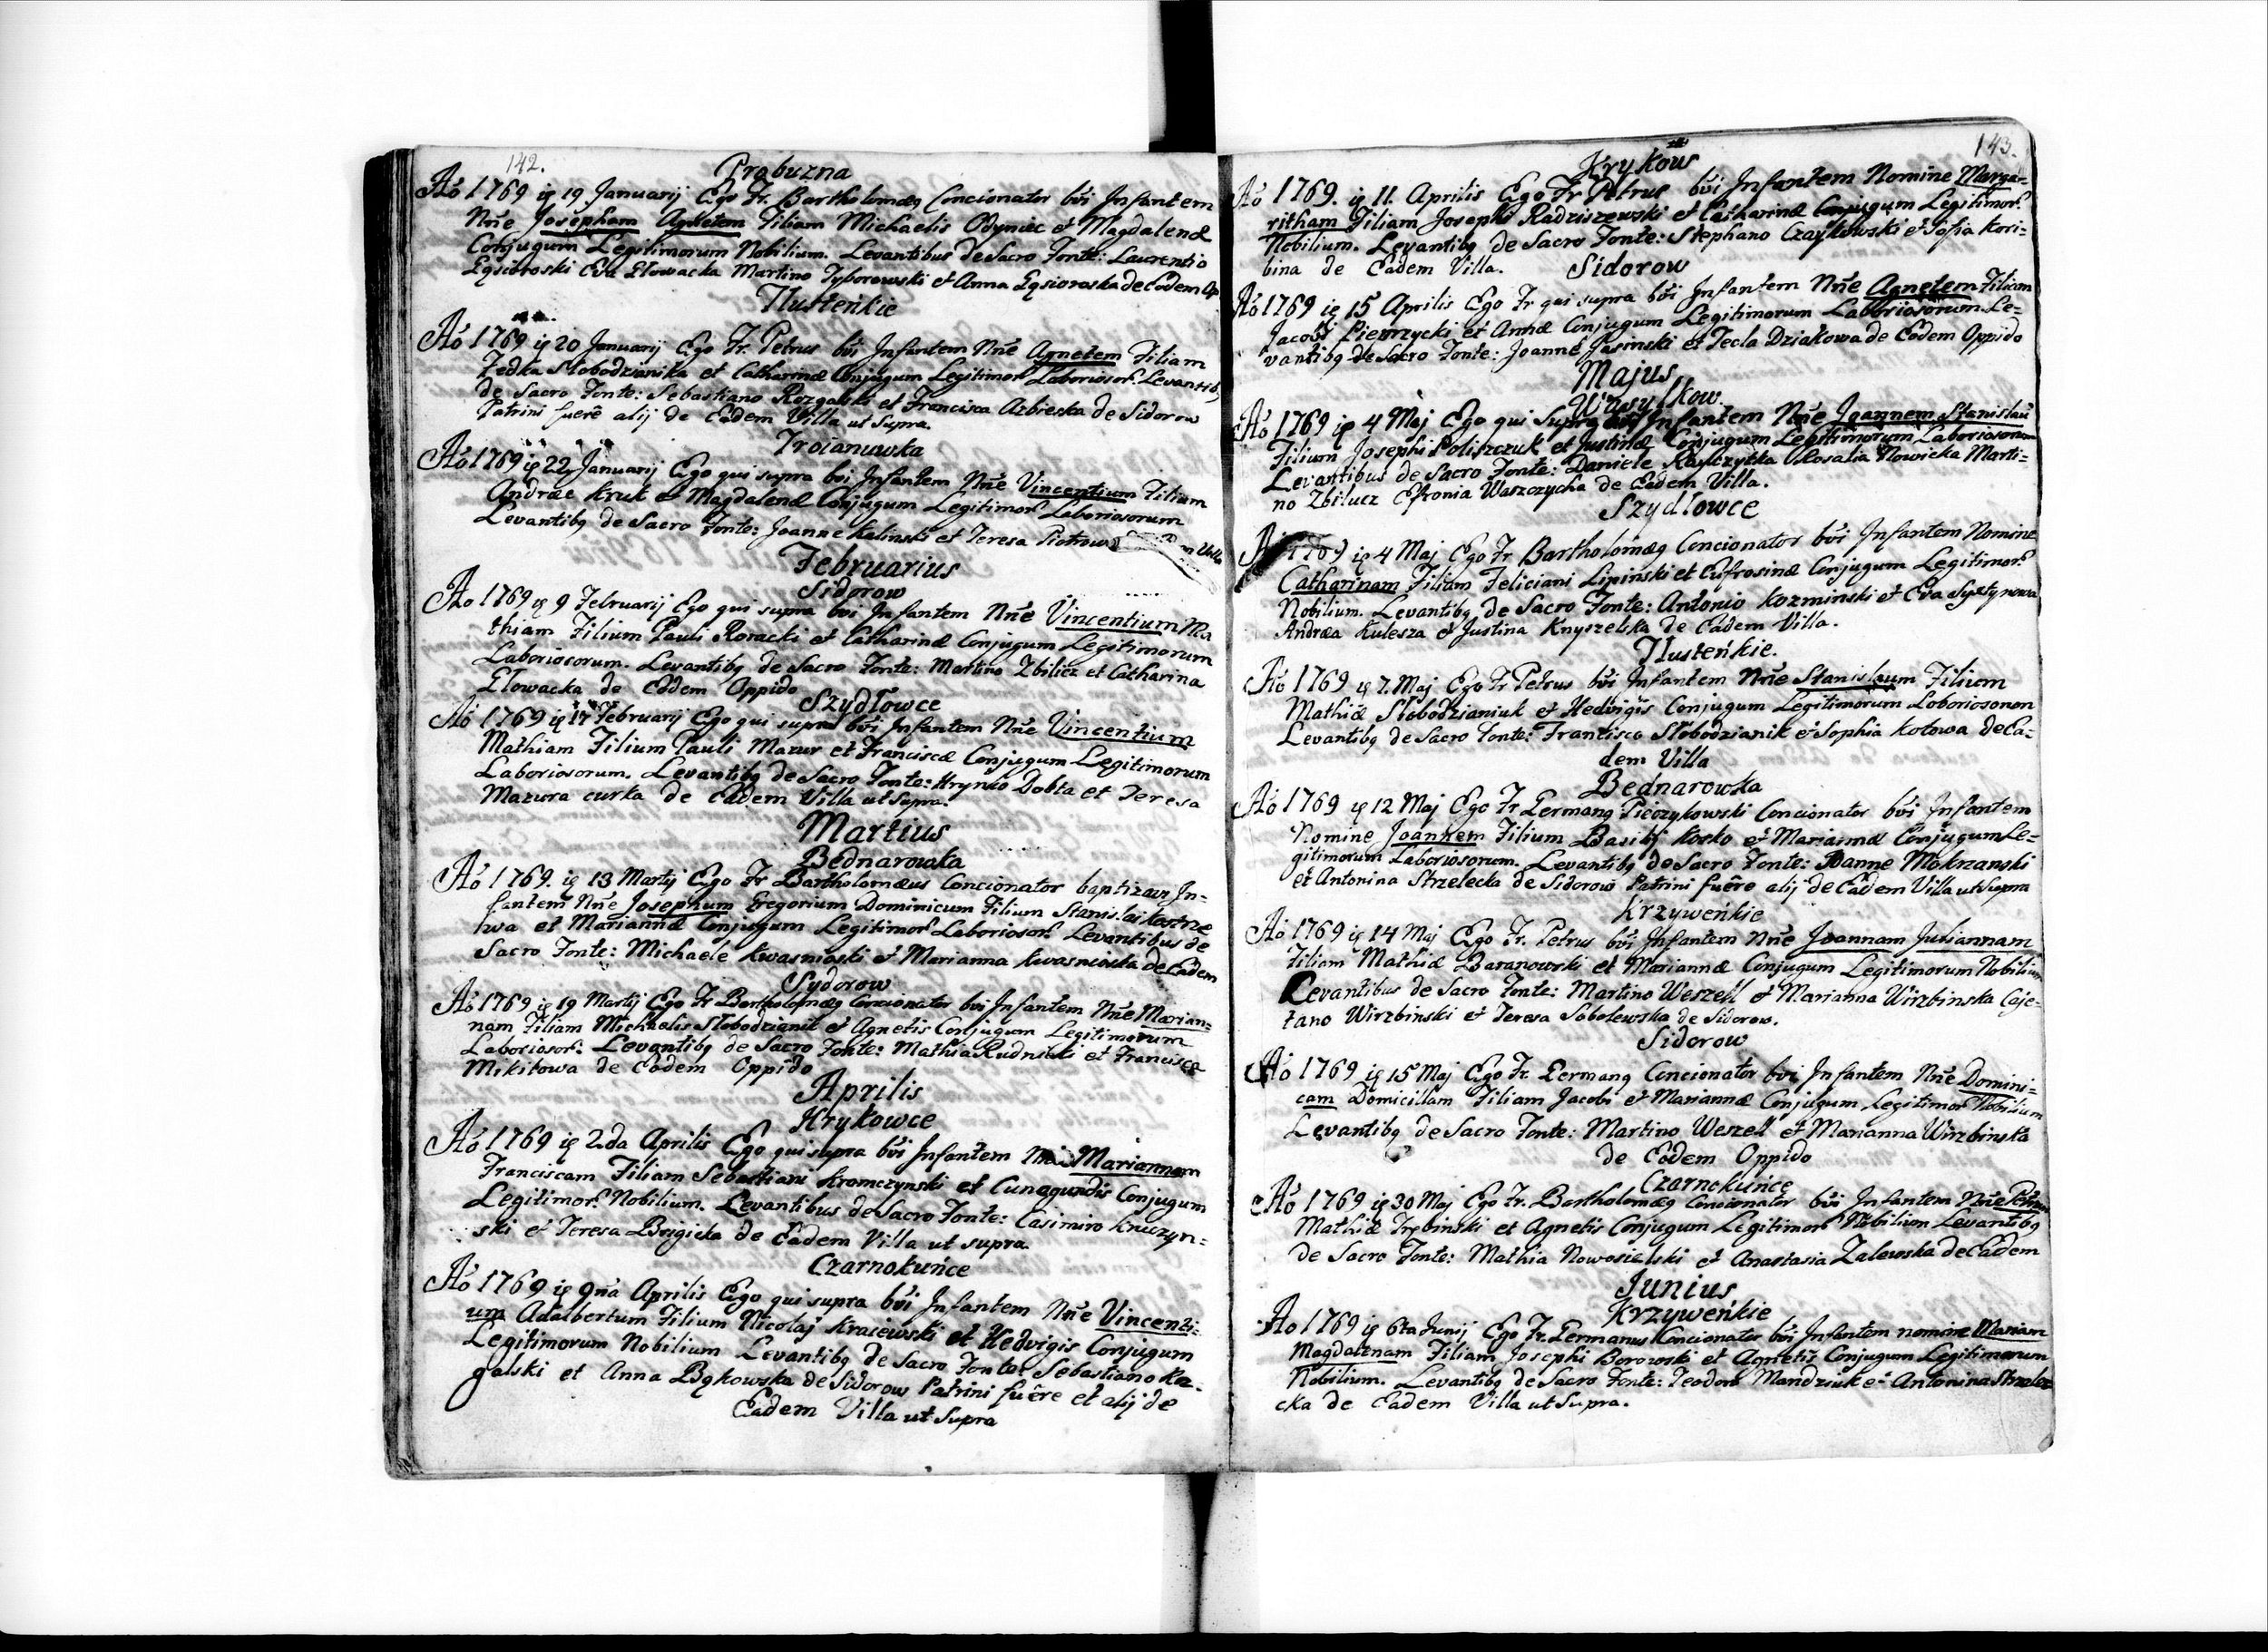 142.
Probuzna
Ao 1769 ię 19 Januarij Ego Fr. Bartholomæq Concionator bvi Infantem
Nñe Josepham Agnetem Filiam Michaelis Odyniec et Magdalenæ
Conjugum Legitimorum Nobilium. Levantibus de Sacro Fonte: Laurentio
Gąsioroski Eva Głowacka Martino Tyborowski et Anna Gąsioroska de Eodem Op
Tłusteńkie
Ao 1769 ię 20 Januarij Ego Fr. Petrus bvi Infantem Nñe Agnetem Filiam
Fedka Słobodzianika et Catharinæ Conjugum Legitimor. Laboriosor. Levantibq
de Sacro Fonte: Sebastiano Rozgalski et Francisca Azbieska de Sidorow
Patrini fuerê alij de Eadem Villa ut Supra.
Troianuwka
Ao 1769 ię 22 Januarij Ego qui supra bvi Infantem Nñe Vincentium Filium
Andræe Kruk et Magdalenæ Conjugum Legitimor. Laboriosorum
Levantibq de Sacro Fonte: Joanne Kalinski et Teresa Villa
Februarius
Sidorow
Ao 1769 ię 9 Februarij Ego qui supra bvi Infantem Nñe Vincentium Ma
thiam Filium Pauli Roracki et Catharinæ Conjugum Legitimorum
Laboriosorum. Levantibq de Sacro Fonte: Martino Zbilicz et Catharina
Głowacka de Eodem Oppido
Szydłowce
Ao 1769 ię 17 Februarij Ego qui supra bvi Infantem Nñe Vincentium
Mathiam Filium Pauli Mazur et Franciscæ Conjugum Legitimorum
Laboriosorum. Levantibq de Sacro Fonte: Hrynio Dobta et Teresa
Mazura curka de Eadem Villa ut Supra.
Martius
Bednarowka
Ao 1769. ię 13 Martij Ego Fr Bartholomæus Concionator baptizavi In=
fantem Nñe Josephum Gregorium Dominicum Filium Stanislai
wa et Mariannæ Conjugum Legitimor. Laboriosor. Levantibus de
Sacro Fonte: Michaele Kwasnioski et Marianna Kwasnioska de Eadem
Sydorow
Ao 1769 ię 19 Martij Ego Fr Bartholomæq Concionator bvi Infantem Nñe Marian=
nam Filiam Michaelis Słobodzianik et Agnetis Conjugum Legitimorum
Laboriosor. Levantibq de Sacro Fonte: Mathia Rudnicki et Francisca
Mikitowa de Eodem Oppido
Aprilis
Krykowce
Ao 1769 ię 2da Aprilis Ego qui supra bvi Infantem Mariannam
Franciscam Filiam Sebastiani Kromczynski et Cunegundis Conjugum
Legitimor. Nobilium. Levantibus de Sacro Fonte: Casimiro Kruczyn=
ski et Teresa Brigicka de Eadem Villa ut supra.
Czarnokuńce
Ao 1769 ię 9na Aprilis Ego qui supra bvi Infantem Nñe Vincenti=
um Adalbertum Filium Nicolaj Kraiewski et Hedvigis Conjugum
Legitimorum Nobilium Levantibq de Sacro Fonte: Sebastiano Roz=
galski et Anna Bąkowska de Sidorow Patrini fuêre et alij de
Eadem Villa ut Supra
143.
Krykow
Ao 1769. ię 11. Aprilis Ego Fr Petrus bvi Infantem Nomine Margar=
ritham Filiam Josephi Radziszewski et Catharinæ Conjugum Legitimor.
Nobilium. Levantibq de Sacro Fonte: Stephano Czaykowski et Sofia Kori=
bina de Eadem Villa.
Sidorow
Ao 1769 ię 15 Aprilis Ego Fr qui supra bvi Infantem Nñe Agnetem Filiam
Jacobi Pierzycki et Annæ Conjugum Legitimorum Laboriosorum. Le=
vantibq de Sacro Fonte: Joanne Jasinski et Tecla Dziakowa de Eodem Oppido
Majus
Wasylkow.
Ao 1769 ię 4 Maj Ego qui Supra bvi Infantem Nñe Joannem Stanislau
Filium Josephi Poliszczuk et Justinæ Conjugum Legitimorum Laboriosorum
Levantibus de Sacro Fonte: Daniele Rayczytka Rosalia Nowicka Marti=
no Zbilucz Efronia Waszczycha de Eadem Villa.
Szydłowce
ię 4 Maj Ego Fr Bartholomæq Concionator bvi Infantem Nomine
Catharinam Filiam Feliciani Lipinski et Eufrosinæ Conjugum Legitimor.
Nobilium. Levantibq de Sacro Fonte: Antonio Kozminski et Eva Syxtynowa
Andræa Kulesza et Justina Knyszelska de Eadem Villa.
Tłusteńkie.
Ao 1769 ię 7. Maj Ego Fr Petrus bvi Infantem Nñe Stanislaum Filium
Mathiæ Słobodzianiuk et Hedvigis Conjugum Legitimorum Laboriosorum
Levantibq de Sacro Fonte: Francisco Słobodzianik et Sophia Kotowa de Ea=
dem Villa
Bednarowka
Ao 1769 ię 12 Maj Ego Fr Germanq Pieczykowski Concionator bvi Infantem
Nomine Joannem Filium Basilij Kosko et Mariannæ Conjugum Le=
gitimorum Laboriosorum. Levantibq de Sacro Fonte: Joanne Mokrzanski
et Antonina Strzelecka de Sidorow Patrini fuêre alij de Eadem Villa ut Supra
Krzyweńkie
Ao 1769 ię 14 Maj Ego Fr. Petrus bvi Infantem Nñe Joannam Juliannam
Filiam Mathiæ Baranowski et Mariannæ Conjugum Legitimorum Nobilium
Levantibus de Sacro Fonte: Martino Weszell et Marianna Wirzbinska Caje=
tano Wirzbinski et Teresa Sobolewska de Sidorow.
Sidorow
Ao 1769 ię 15 Maj Ego Fr. Germanq Concionator bvi Infantem Nñe Domini=
cam Domicillam Filiam Jacobi et Mariannæ Conjugum Legitimor. Nobilium
Levantibq de Sacro Fonte: Martino Weszell et Marianna Wirzbinska
de Eodem Oppido
Czarnokuńce
Ao 1769 ię 30 Maj Ego Fr. Bartholomæq Concionator bvi Infantem Nñe
Mathiæ Trębinski et Agnetis Conjugum Legitimor. Nobilium Levantibq
de Sacro Fonte: Mathia Nowosielski et Anastasia Zalewska de Eadem
Junius
Krzyweńkie
Ao 1769 ię 6ta Junij Ego Fr. Germanus Concionator bvi Infantem nomine Mariam
Magdalenam Filiam Josephi Borowski et Agnetis Conjugum Legitimorum
Nobilium. Levantibq de Sacro Fonte: Teodoro Mandziuk et Antonina Strzele
cka de Eadem Villa ut Supra.